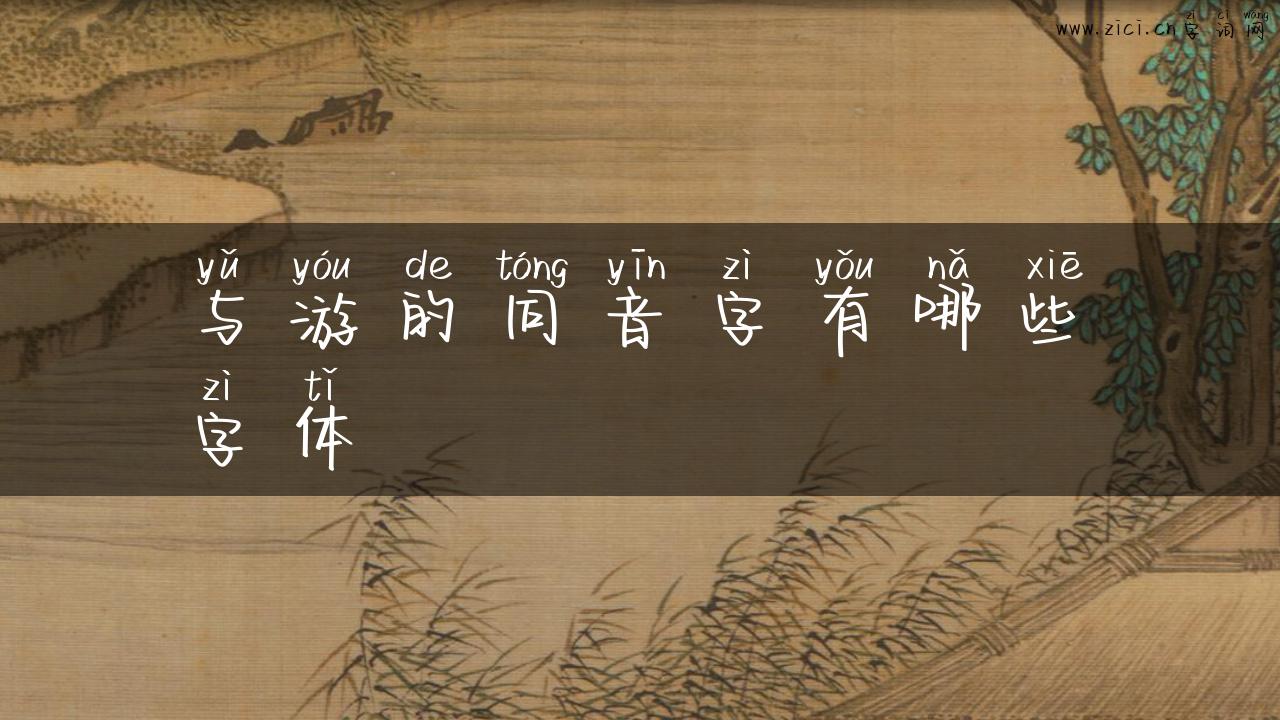 zì cí wǎng
www.zici.cn字词网
yǔ yóu de tóng yīn zì yǒu nǎ xiē
与游的同音字有哪些
zì tǐ
字体